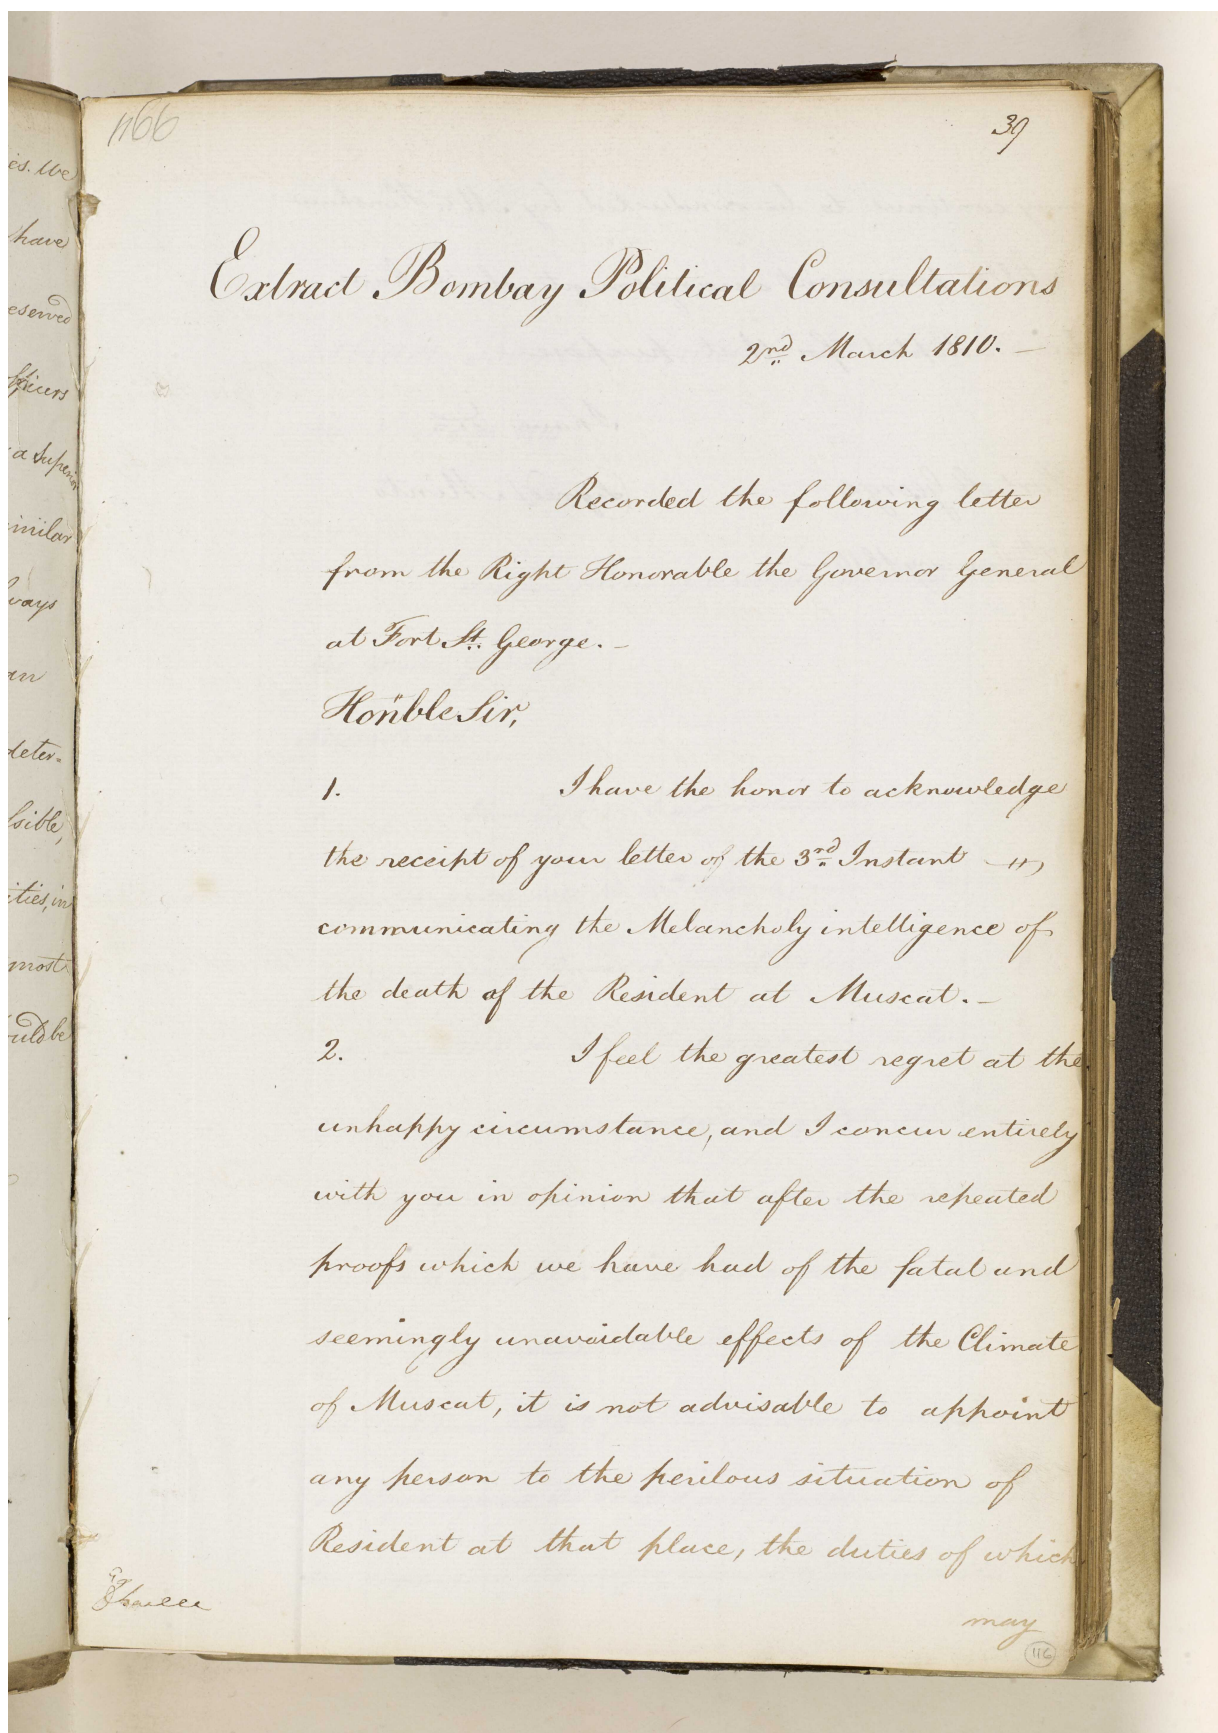 es. We
have
eserved
fficers
a Superior
imilar
ways
an
deter-
sible,
ities, in
most
ould be
1166
39
Extract Bombay Political Consultations
2nd March 1810. —
Recorded the following letter
from the Right Honorable the Governor General
at Fort St. George. —
Hon"ble Sir,
1. I have the honor to acknowledge
the receipt of your letter of the 3rd Instant
communicating the Melancholy intelligence of
the death of the Resident at Muscat. —
2. I feel the greatest regret at the
unhappy circumstance, and I concur entirely
with you in opinion that after the repeated
proofs which we have had of the fatal and
seemingly unavoidable effects of the Climate
of Muscat, it is not advisable to appoint
any person to the perilous situation of
Resident at that place, the duties of which
may
116